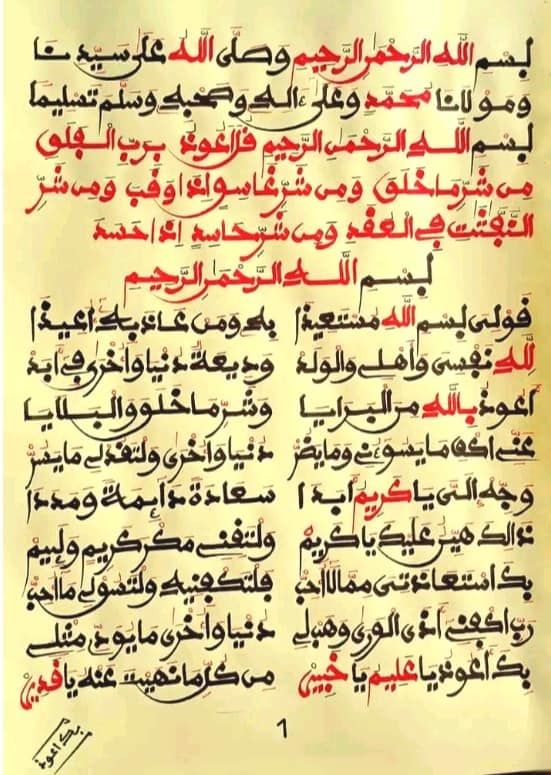 بسم الله الرحمن الرحيم وصلى الله على سيدنا
ومولانا محمد وعلى ءاله وصحبه وسلم تسليما
بسم الله الرحمن الرحيم قل أعوذ برب الفلق
من شر ما خلق ومن شر غاسق إذا وقب ومن شر
النفثت في العقد ومن شر حاسد إذا حسد
بسم الله الرحمن الرحيم
قولي بسم الله مستعيذا به ومن عاذ به أعيذا
لله نفسي وأهلي والولد وديعة دنيا وأخرى في أبد
أعوذ بالله من البرايا وشر ما خلق والبلايا
عني اكف ما يسوءني وما يضر دنيا وأخرى ولتقد لي ما يسر
وجه إلتي يا كريم أبدا سعادة دآيمة ومددا
ذالك هين عليك يا كريم ولتقني مكر كريم ولييم
بك استعاذتي مما لا أحب فلتكفنيه ولتسق لي ما أحب
رب اكفني أذى الورى وهب لي دنيا وأخرى ما يود مثلي
بك أعوذ يا عليم يا خبير من كل ما نهيت عنه يا قدير
1
بك أعوذ